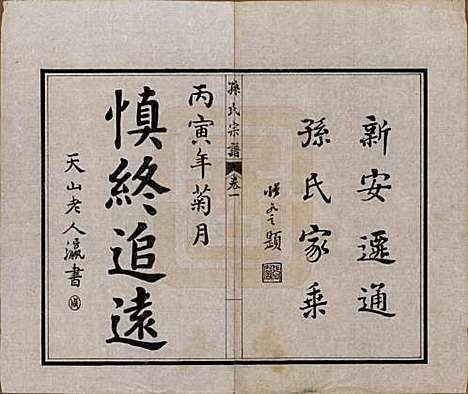 新安遷通
孫氏家乘
題
孫氏宗譜
卷一
丙寅年菊月
慎終追遠
天山老人瀛書